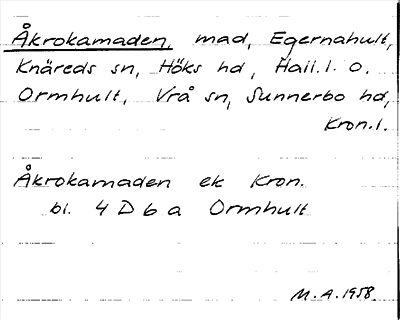 Åkrokamaden, mad, Egernahult,
Knäreds sn, Höks hd, Hall.l. o.
Ormhult, Vrå sn, Sunnerbo hd,
Kron.l.
Åkrokamaden ek Kron.
bl. 4 D 6 a Ormhult
M.A. 1958